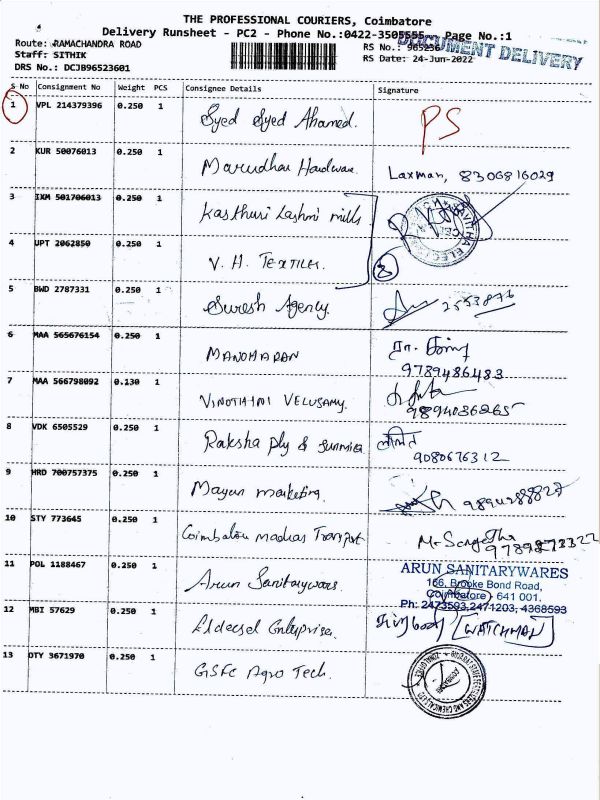 THE PROFESSIONAL COURIERS, Coimbatore
Delivery Runsheet - PC2 - Phone No.:0422-3505555 Page No.:1
DOCUMENT DELIVERY
Route: RAMACHANDRA ROAD
RS No.: 965236
Staff: SITHIK
RS Date: 24-Jun-2022
DRS No.: DCJB96523601
S No Consignment No Weight PCS Consignee Details Signature
1 VPL 214379396 0.250 1 Syed Syed Ahamed. PS
2 KUR 50076013 0.250 1 Marudhar Hardware. Laxman, 8306816029
3 IXM 501706013 0.250 1 Kasthuri Lashmi mills
4 UPT 2062850 0.250 1 V. H. TEXTILES.
5 BWD 2787331 0.250 1 Suresh Agency. 2553876
6 MAA 565676154 0.250 1 MANOHARAN
9789486483
7 MAA 566798092 0.130 1 VINOTHINI VELUSAMY.
9894036265
8 VDK 6505529 0.250 1 Raksha ply & sunmica
9080676312
9 HRD 700757375 0.250 1 Mayan marketing.
10 STY 773645 0.250 1 Coimbatore madras Transport
11 POL 1188467 0.250 1 Arun Sanitarywars.
ARUN SANITARYWARES
166, Brooke Bond Road,
Coimbatore - 641 001.
Ph: 2473593,2471203, 4368593
12 MBI 57629 0.250 1 Enterprises. WATCHMAN
13 DTY 3671970 0.250 1 GSFC Agro Tech.